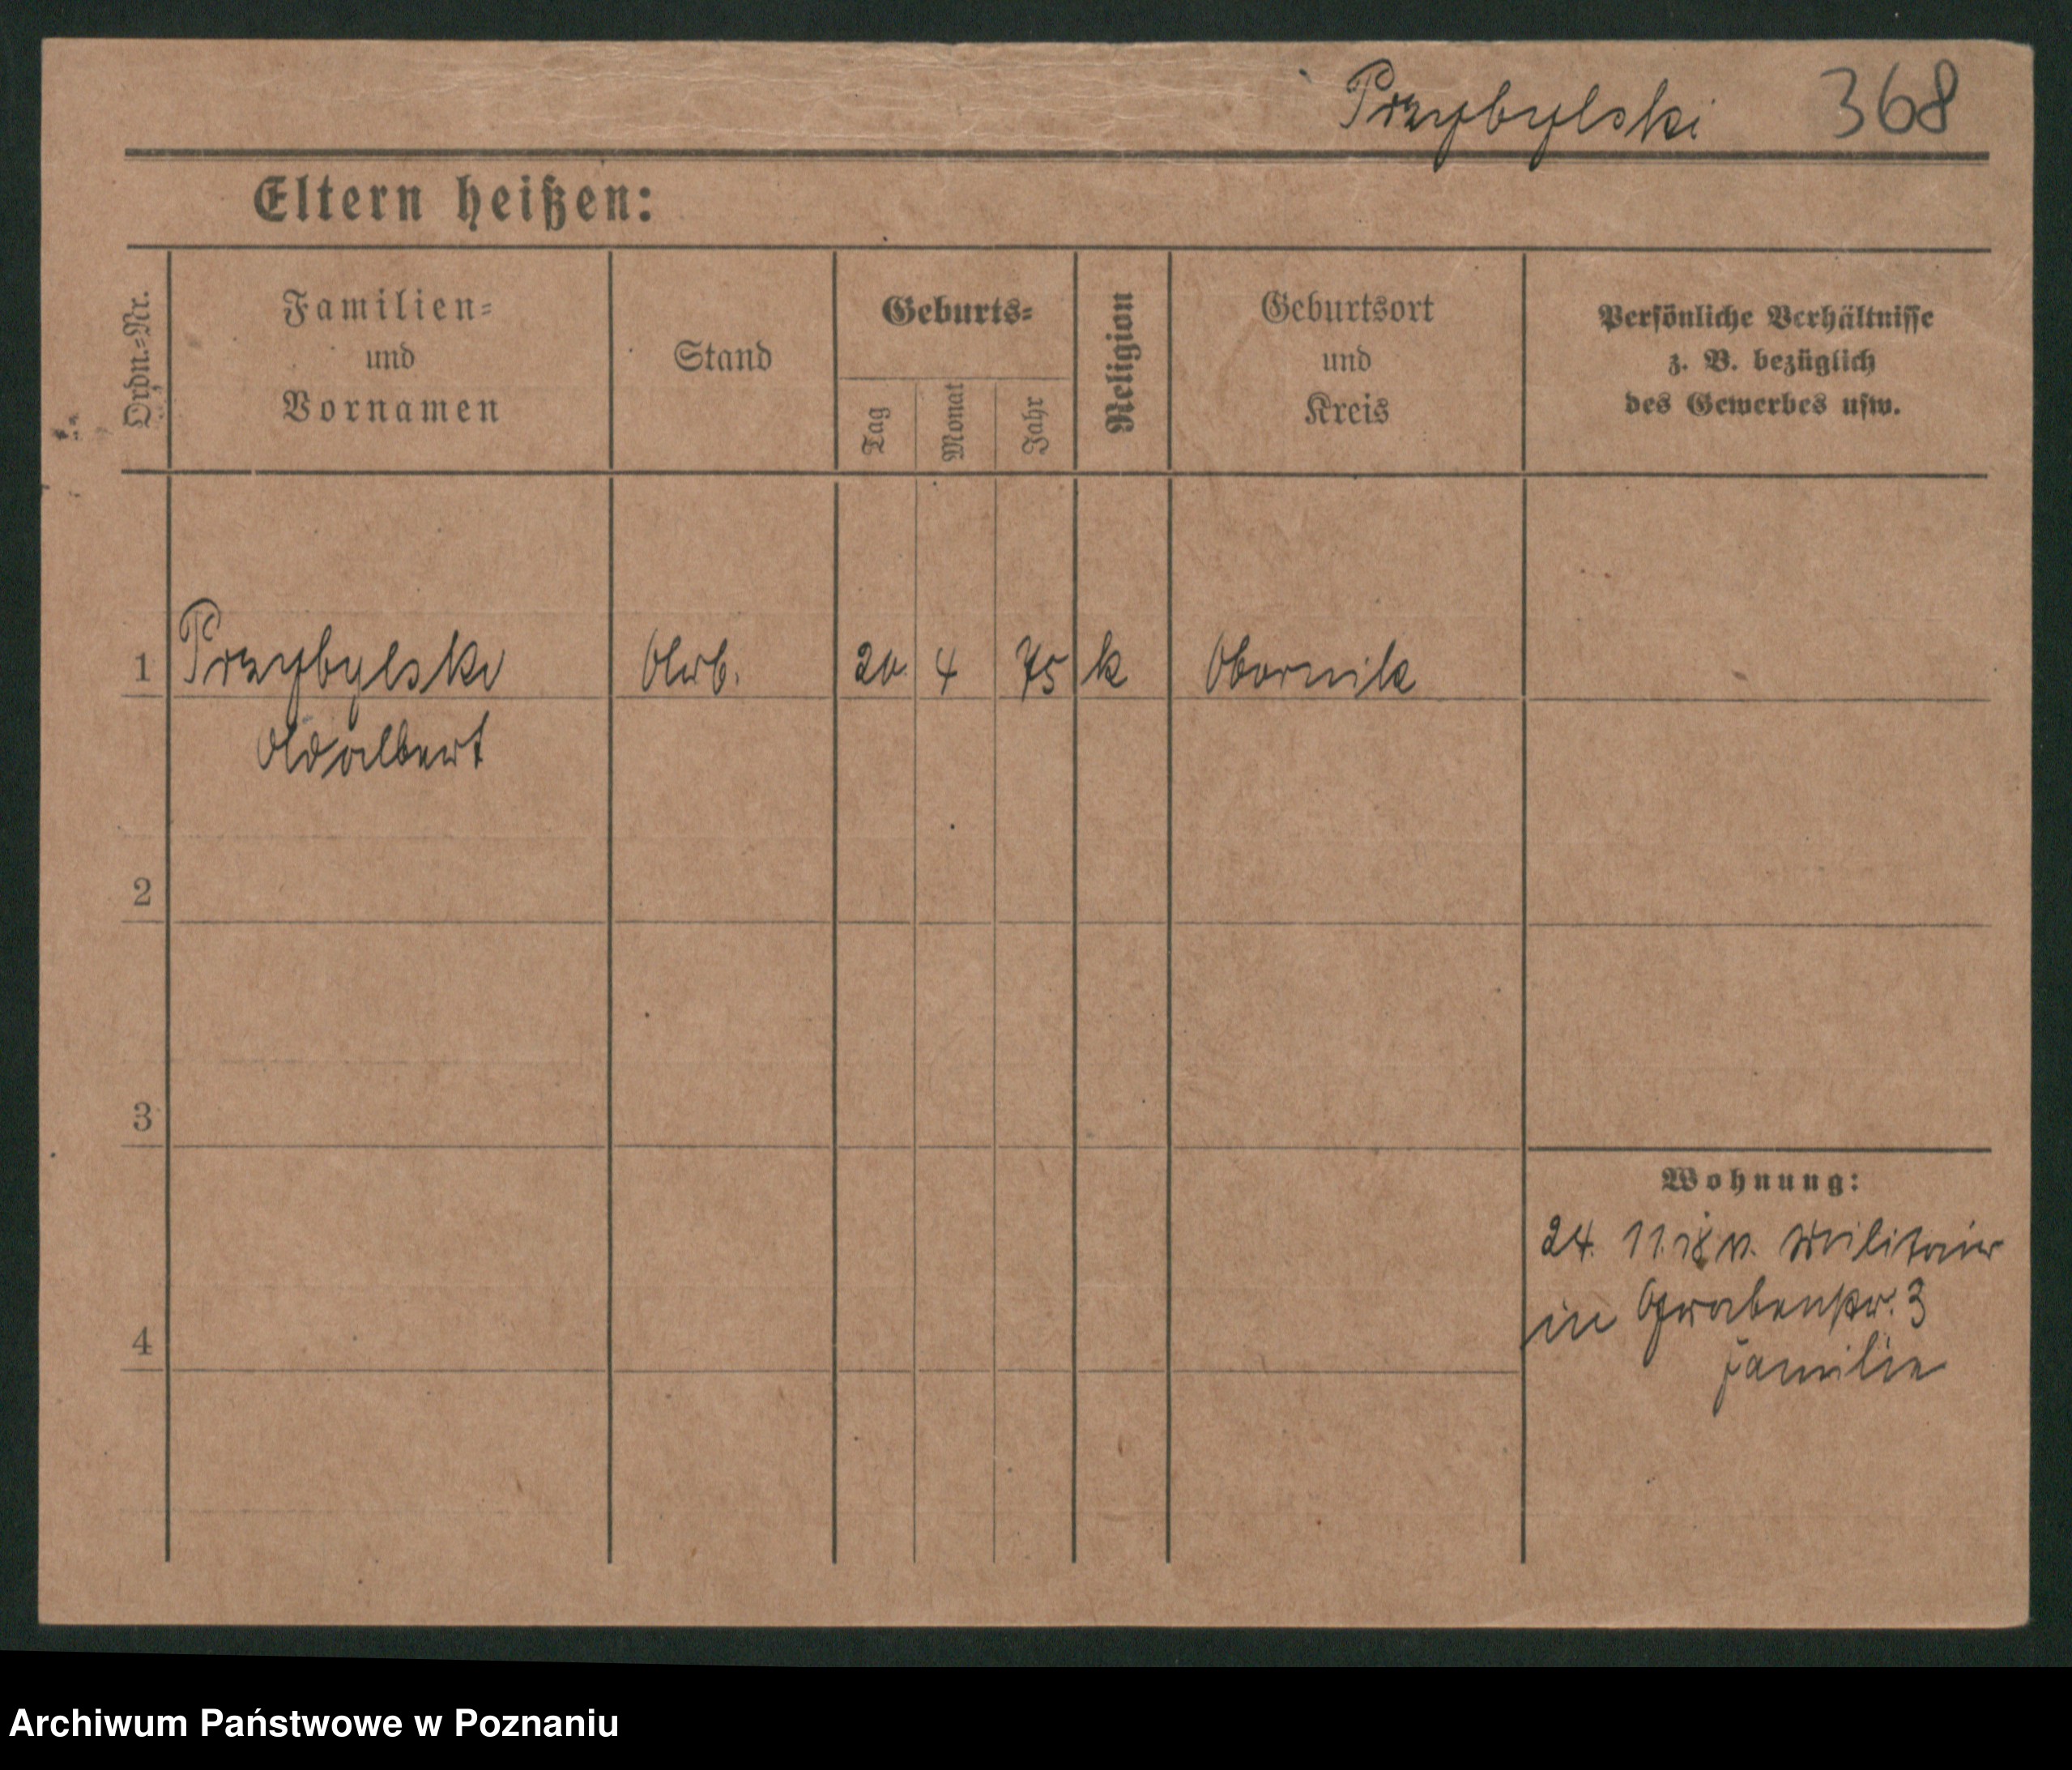 Przybylski 368
Eltern heißen:
Ordn.-Nr.
Familien-
und
Vornamen
Stand
Geburts-
Tag
Monat
Jahr
Religion
Geburtsort
und
Kreis
Persönliche Verhältnisse
z. B. bezüglich
des Gewerbes usw.
1 Przybylski Arb. 20. 4 75 k Obornik
Adalbert
2
3
Wohnung:
24. 11. 18 v. Militair
in Grabenstr. 3
Familie
4
Archiwum Państwowe w Poznaniu